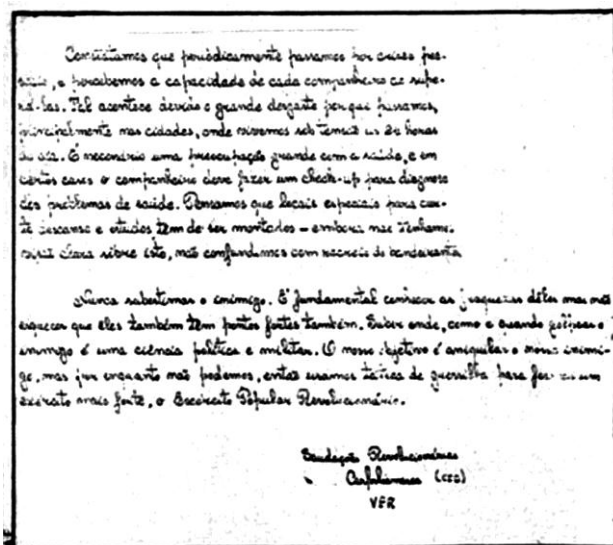 Constatamos que periòdicamente passamos por crises pes-
soais, e percebemos a capacidade de cada companheiro de supe-
rá-las. Tal acontece devido o grande desgaste porque passamos,
principalmente nas cidades, onde vivemos sob tensão as 24 horas
do dia. É necessário uma preocupação grande com a saúde, e em
certos casos o companheiro deve fazer um check-up para diagnose
dos problemas de saúde. Pensamos que locais especiais para cur-
to descanso e estudos têm de ser montados - embora não tenhamos
clara sôbre isto, não confundamos com recreio de bandeirante
Nunca subestimar o inimigo. É fundamental conhecer as fraquezas dêles mas não
esquecer que eles também têm pontos fortes também. Saber onde, como e quando golpear o
inimigo é uma ciência política e militar. O nosso objetivo é aniquilar o nosso inimi-
go, mas por enquanto não podemos, então usamos tática de guerrilha para formar um
exército mais forte, o Exército Popular Revolucionário.
Saudações Revolucionárias
VPR